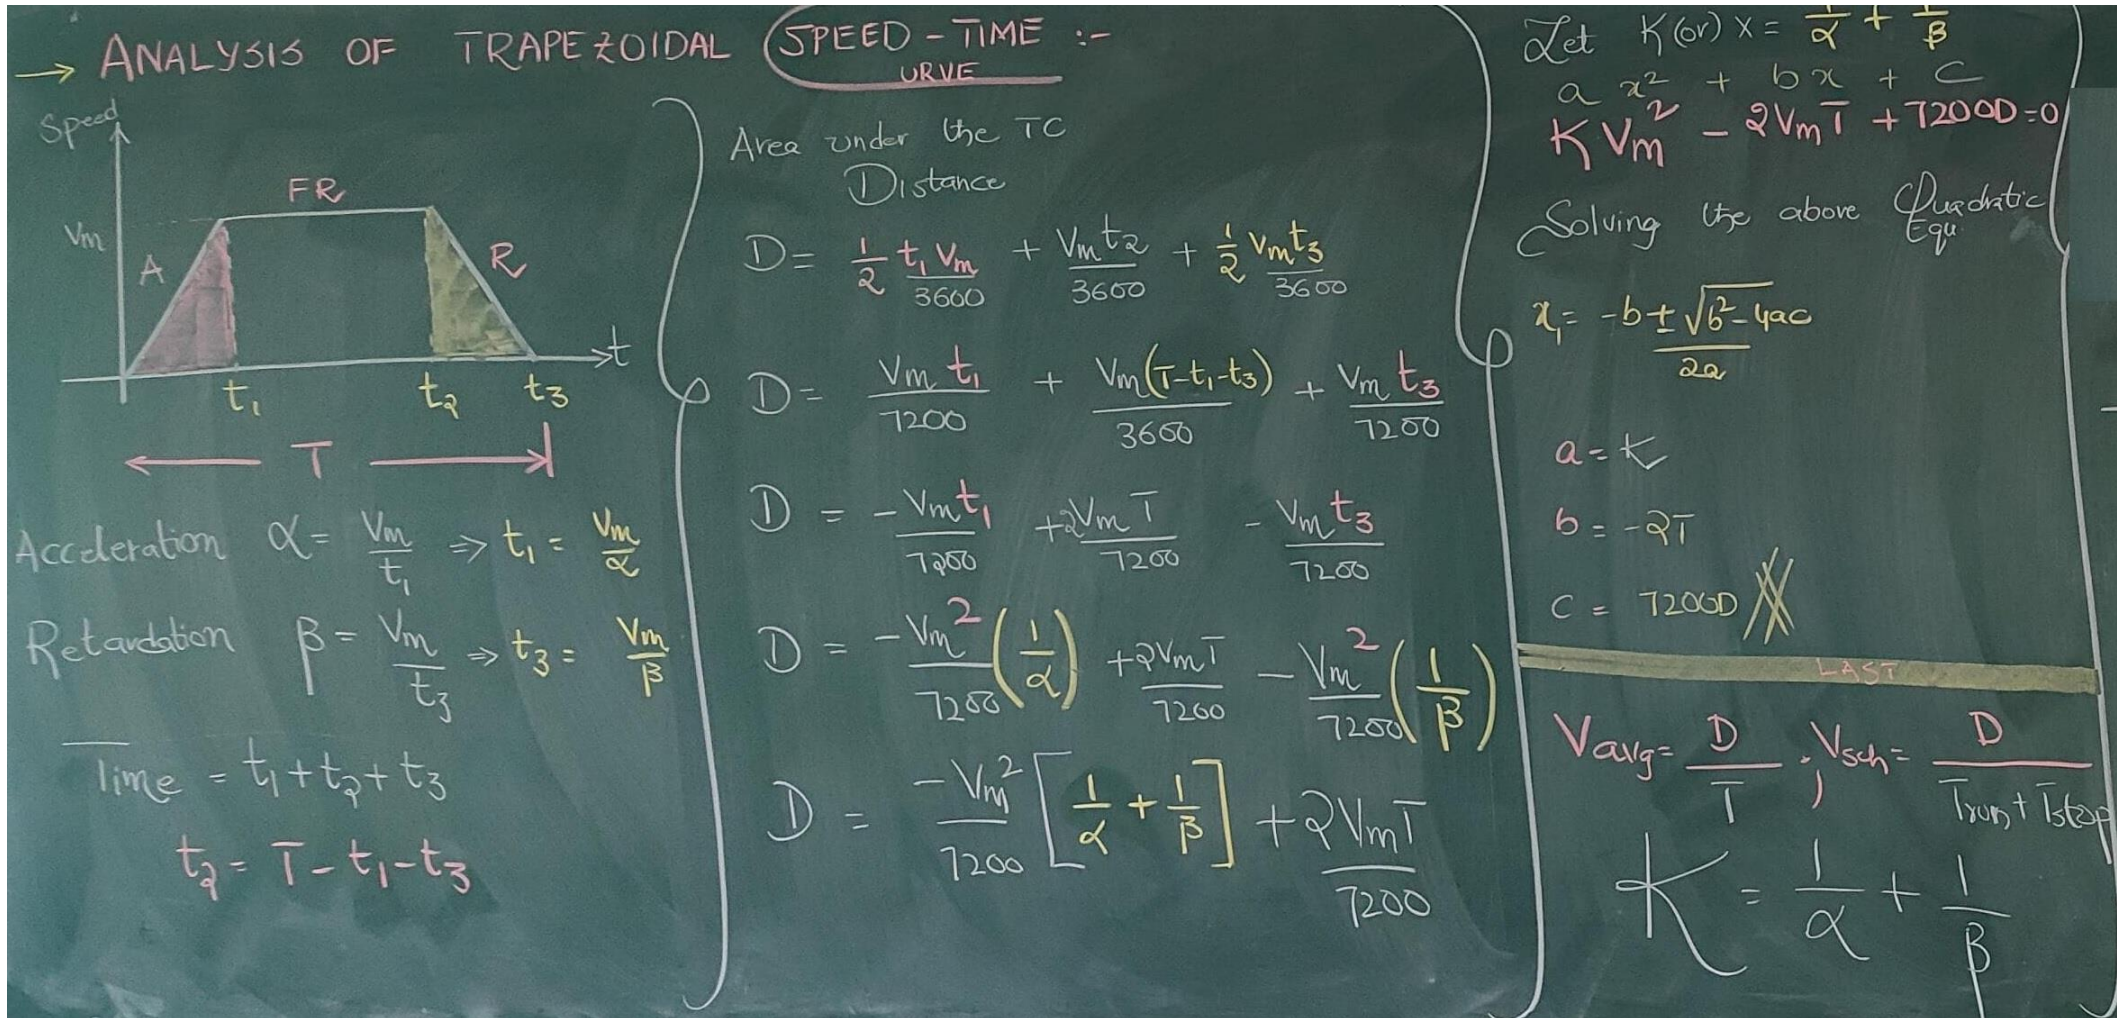 → ANALYSIS OF TRAPEZOIDAL SPEED - TIME :-
URVE
Speed
Vm
A
FR
R
t
t₁ t₂ t₃
T
Acceleration α = Vm/t₁ ⇒ t₁ = Vm/α
Retardation β = Vm/t₃ ⇒ t₃ = Vm/β
Time = t₁ + t₂ + t₃
t₂ = T - t₁ - t₃
Area under the TC
Distance
D = 1/2 t₁ Vm/3600 + Vm t₂/3600 + 1/2 Vm t₃/3600
D = Vm t₁/7200 + Vm(T-t₁-t₃)/3600 + Vm t₃/7200
D = - Vm t₁/7200 + 2Vm T/7200 - Vm t₃/7200
D = - Vm²/7200 (1/α) + 2VmT/7200 - Vm²/7200 (1/β)
D = - Vm²/7200 [1/α + 1/β] + 2VmT/7200
Let K (or) X = 1/α + 1/β
a x² + b x + C
K Vm² - 2VmT + 7200D = 0
Solving the above Quadratic
Equ.
x₁ = -b ± √b²-4ac / 2a
a = K
b = -2T
C = 7200D
LAST
Vavg = D/T ; Vsch = D/Trun + Tstop
K = 1/α + 1/β